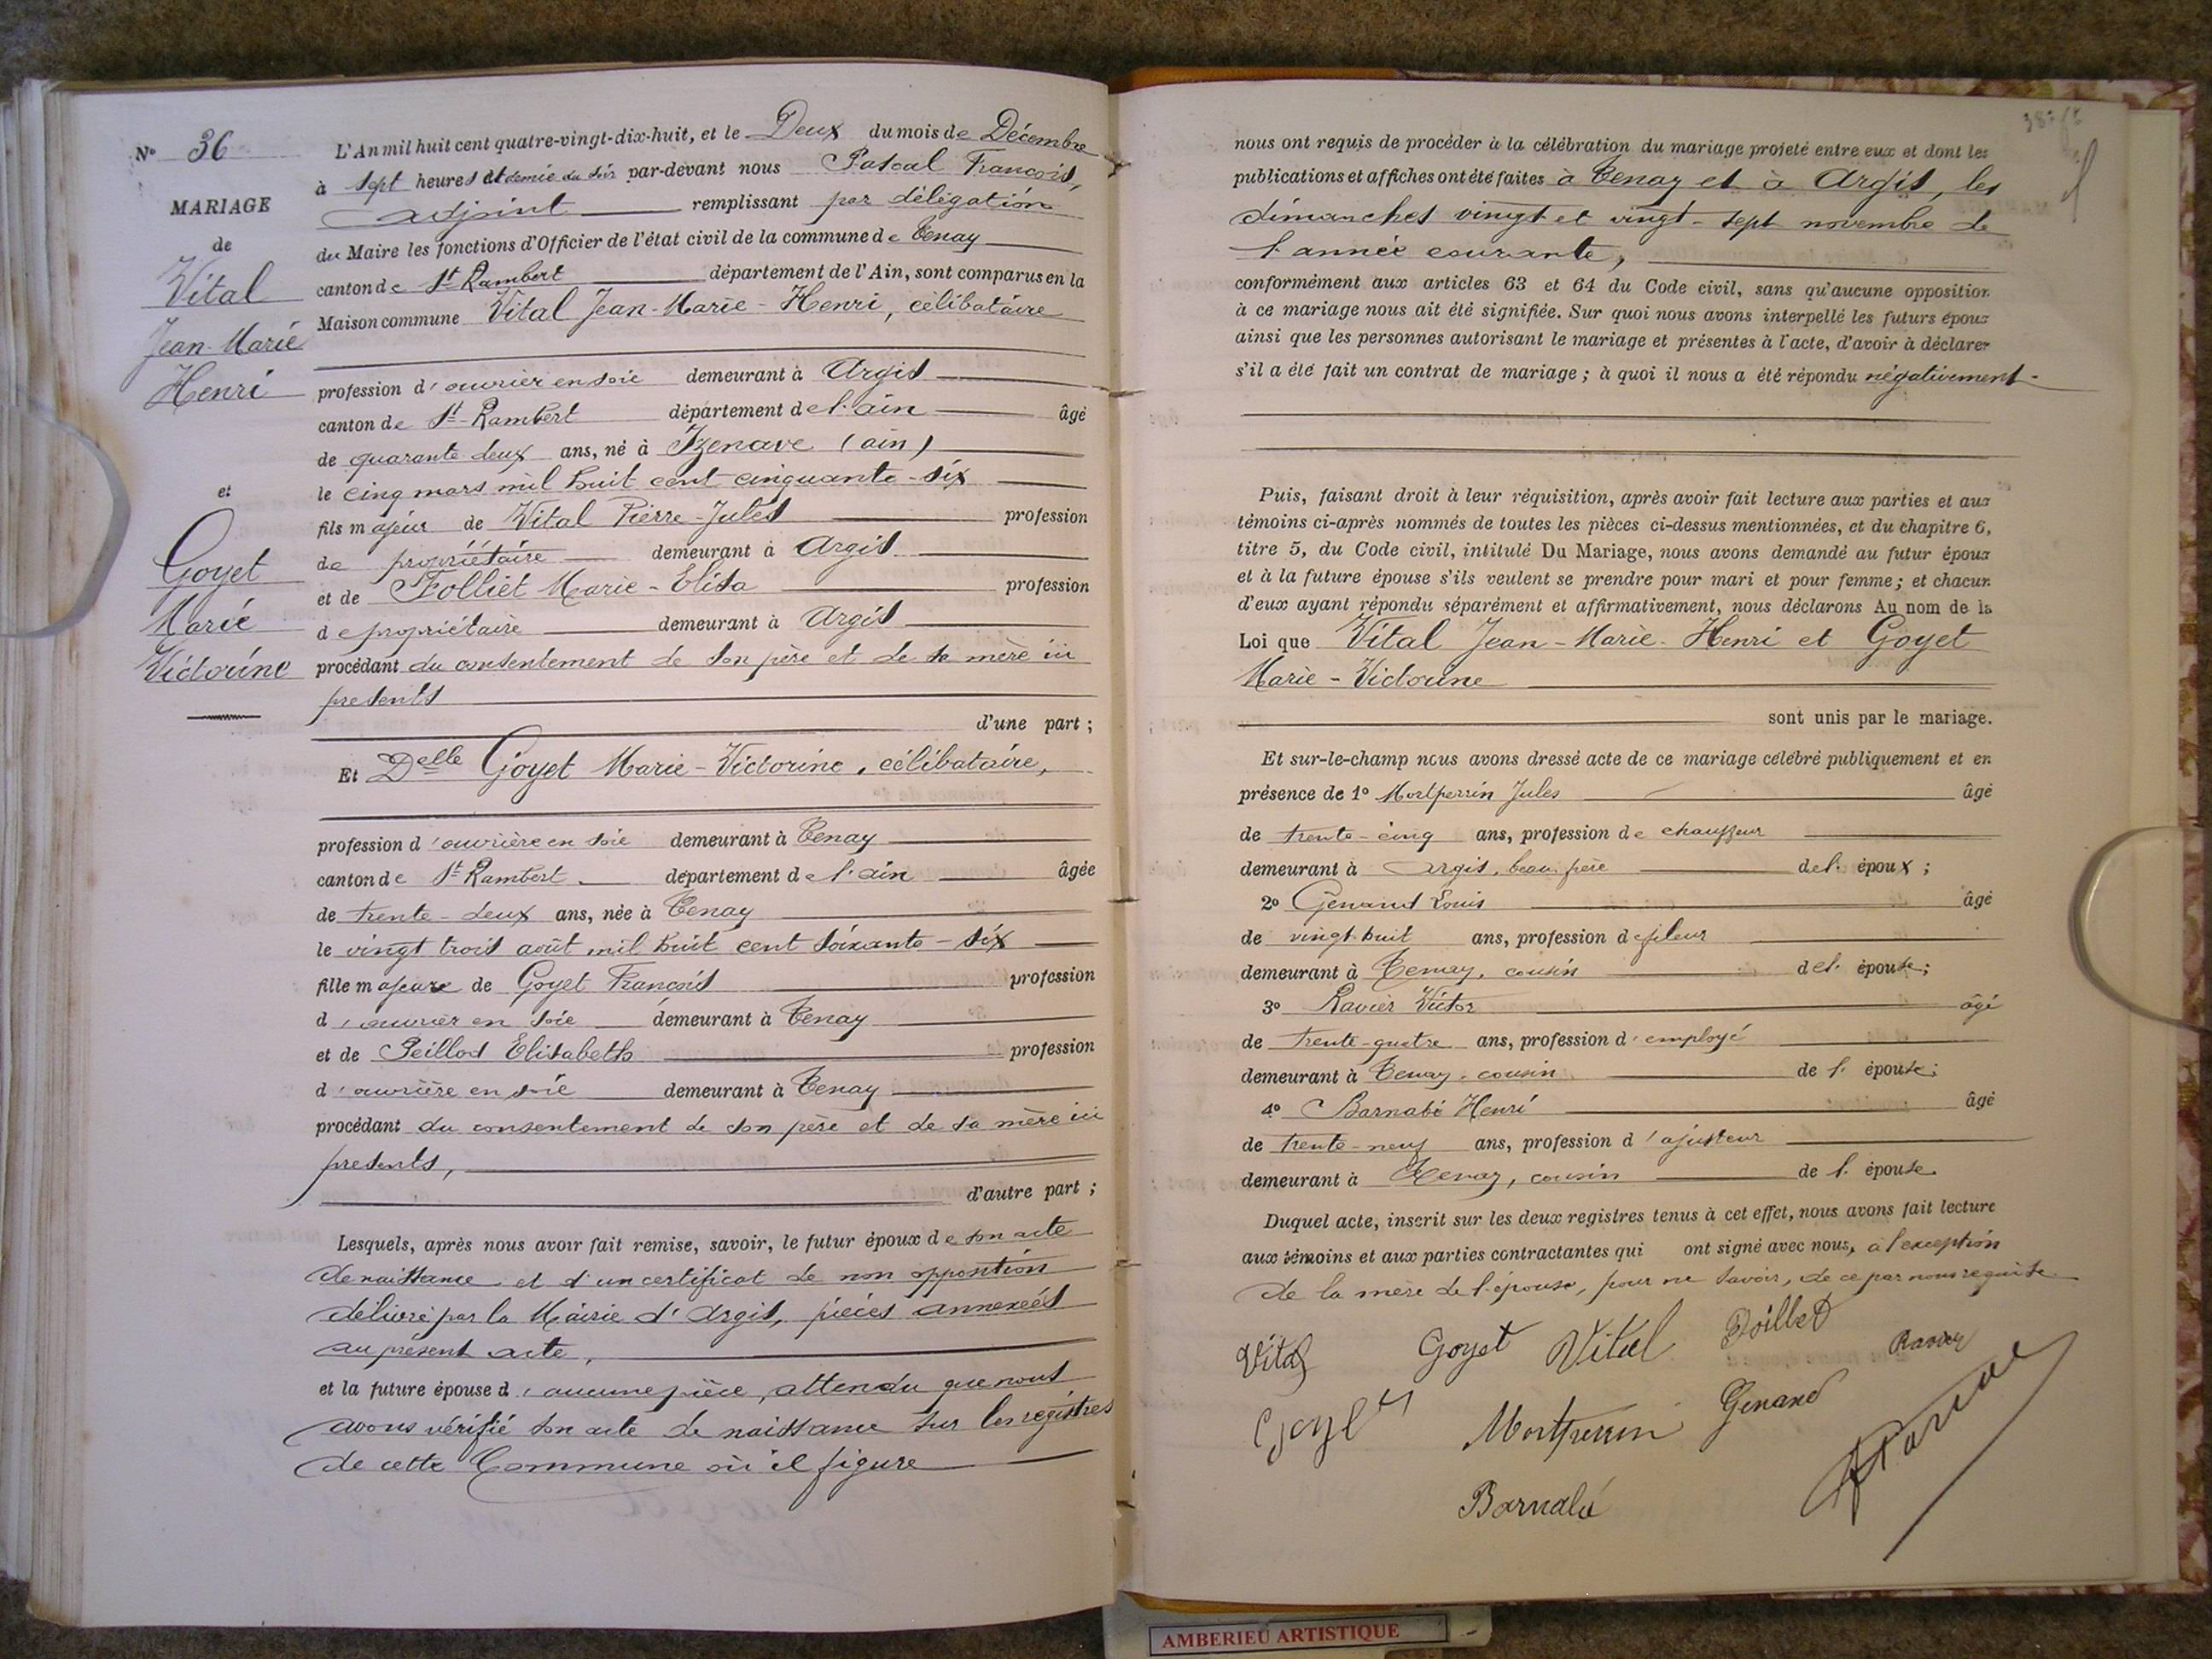 N° 36
MARIAGE
de
Vital
Jean-Marie
Henri
et
Goyet
Marie
Victorine
L'An mil huit cent quatre-vingt-dix-huit, et le Deux du mois de Décembre
à sept heures et demie du soir par-devant nous Pascal François,
adjoint remplissant par délégation
du Maire les fonctions d'Officier de l'état civil de la commune de Tenay
canton de St Rambert département de l'Ain, sont comparus en la
Maison commune Vital Jean-Marie-Henri, célibataire
profession d'ouvrier en soie demeurant à Argis
canton de St-Rambert département de l'ain âgé
de quarante deux ans, né à Izenave (ain)
le cinq mars mil huit cent cinquante-six
fils majeur de Vital Pierre-Jules profession
de propriétaire demeurant à Argis
et de Folliet Marie-Elisa profession
de propriétaire demeurant à Argis
procédant du consentement de son père et de sa mère ici
présents
d'une part ;
Et Delle Goyet Marie-Victorine, célibataire,
profession d'ouvrière en soie demeurant à Tenay
canton de St Rambert département de l'ain âgée
de trente-deux ans, née à Tenay
le vingt trois août mil huit cent soixante-six
fille majeure de Goyet François profession
d'ouvrier en soie demeurant à Tenay
et de Peillod Elisabeth profession
d'ouvrière en soie demeurant à Tenay
procédant du consentement de son père et de sa mère ici
présents,
d'autre part ;
Lesquels, après nous avoir fait remise, savoir, le futur époux de son acte
de naissance et d'un certificat de non opposition
délivré par la Mairie d'Argis, pièces annexées
au présent acte,
et la future épouse d'aucune pièce, attendu que nous
avons vérifié son acte de naissance sur les registres
de cette Commune où il figure
nous ont requis de procéder à la célébration du mariage projeté entre eux et dont les
publications et affiches ont été faites à Tenay et à Argis, les
dimanches vingt et vingt-sept novembre de
l'année courante,
conformément aux articles 63 et 64 du Code civil, sans qu'aucune opposition
à ce mariage nous ait été signifiée. Sur quoi nous avons interpellé les futurs époux
ainsi que les personnes autorisant le mariage et présentes à l'acte, d'avoir à déclarer
s'il a été fait un contrat de mariage ; à quoi il nous a été répondu négativement
Puis, faisant droit à leur réquisition, après avoir fait lecture aux parties et aux
témoins ci-après nommés de toutes les pièces ci-dessus mentionnées, et du chapitre 6,
titre 5, du Code civil, intitulé Du Mariage, nous avons demandé au futur époux
et à la future épouse s'ils veulent se prendre pour mari et pour femme ; et chacun
d'eux ayant répondu séparément et affirmativement, nous déclarons Au nom de la
Loi que Vital Jean-Marie-Henri et Goyet
Marie-Victorine
sont unis par le mariage.
Et sur-le-champ nous avons dressé acte de ce mariage célébré publiquement et en
présence de 1° Mortperrin Jules âgé
de trente-cinq ans, profession de chauffeur
demeurant à Argis, beau frère de l'époux ;
2° Genand Louis âgé
de vingt huit ans, profession de fileur
demeurant à Tenay, cousin de l'épouse ;
3° Ravier Victor âgé
de trente-quatre ans, profession d'employé
demeurant à Tenay, cousin de l'épouse ;
4° Barnabé Henri âgé
de trente-neuf ans, profession d'ajusteur
demeurant à Tenay, cousin de l'épouse
Duquel acte, inscrit sur les deux registres tenus à cet effet, nous avons fait lecture
aux témoins et aux parties contractantes qui ont signé avec nous, à l'exception
de la mère de l'épouse, pour ne savoir, de ce par nous requise
Vital Goyet Vital Ravier
Goyet Mortperrin Genand
Barnabé
AMBERIEU ARTISTIQUE